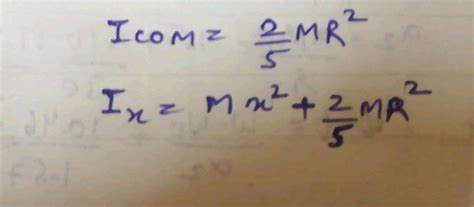 Icom = 2/5 MR²
Ix = Mx² + 2/5 MR²